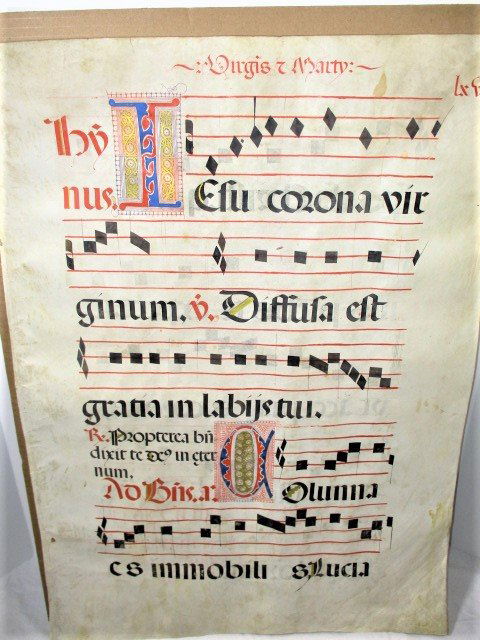 ~:Virgis ⁊ Marty:~
lxv
Hẏ I
nus. Esu corona vir
ginum. ℣. Diffusa est
gratia in labijs tui.
℟. Propterea bn̄
dixit te de⁹ in eter
num.
Ad Bn̄s. a. C olunna
es immobili s Lucia